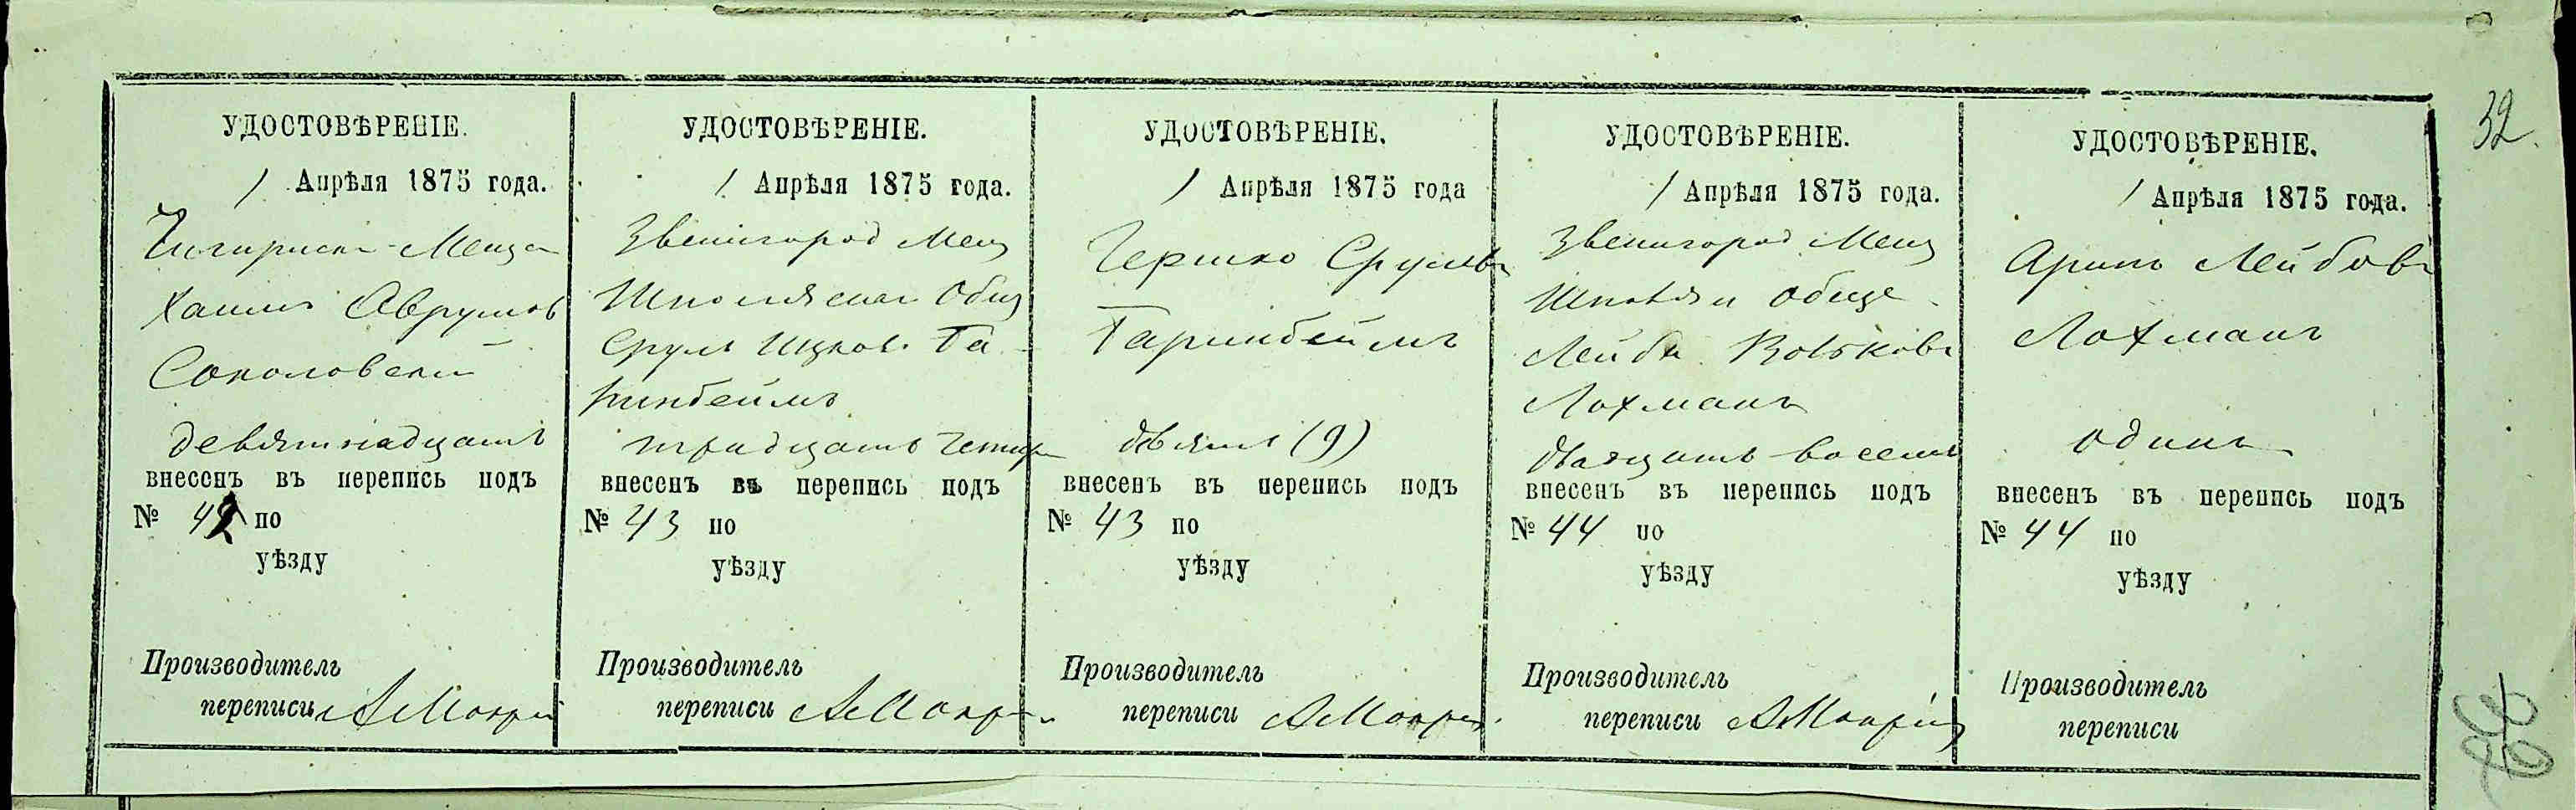 32.
УДОСТОВѢРЕНІЕ.
1 Апрѣля 1875 года.
Чигиринск Меща
Хаимъ Аврумов
Соколовски
девятнадцать
внесенъ въ перепись подъ
№ 42 по
уѣзду
Производитель
переписи
УДОСТОВѢРЕНІЕ.
1 Апрѣля 1875 года.
Звенигород Мещ
Шполянскаг Общ
Сруль Ицков. Га
ринбеймъ
тридцать четыр
внесенъ въ перепись подъ
№ 43 по
уѣзду
Производитель
переписи
УДОСТОВѢРЕНІЕ.
1 Апрѣля 1875 года
Гершко Срулевъ
Гаринбеймъ
девять (9)
внесенъ въ перепись подъ
№ 43 по
уѣзду
Производитель
переписи
УДОСТОВѢРЕНІЕ.
1 Апрѣля 1875 года.
Звенигород Мещ
Шполян обще
Лейба Волькovъ
Лохманъ
двадцать восемь
внесенъ въ перепись подъ
№ 44 по
уѣзду
Производитель
переписи
УДОСТОВѢРЕНІЕ.
1 Апрѣля 1875 года.
Аринъ Лейбовъ
Лохманъ
одинъ
внесенъ въ перепись подъ
№ 44 по
уѣзду
Производитель
переписи